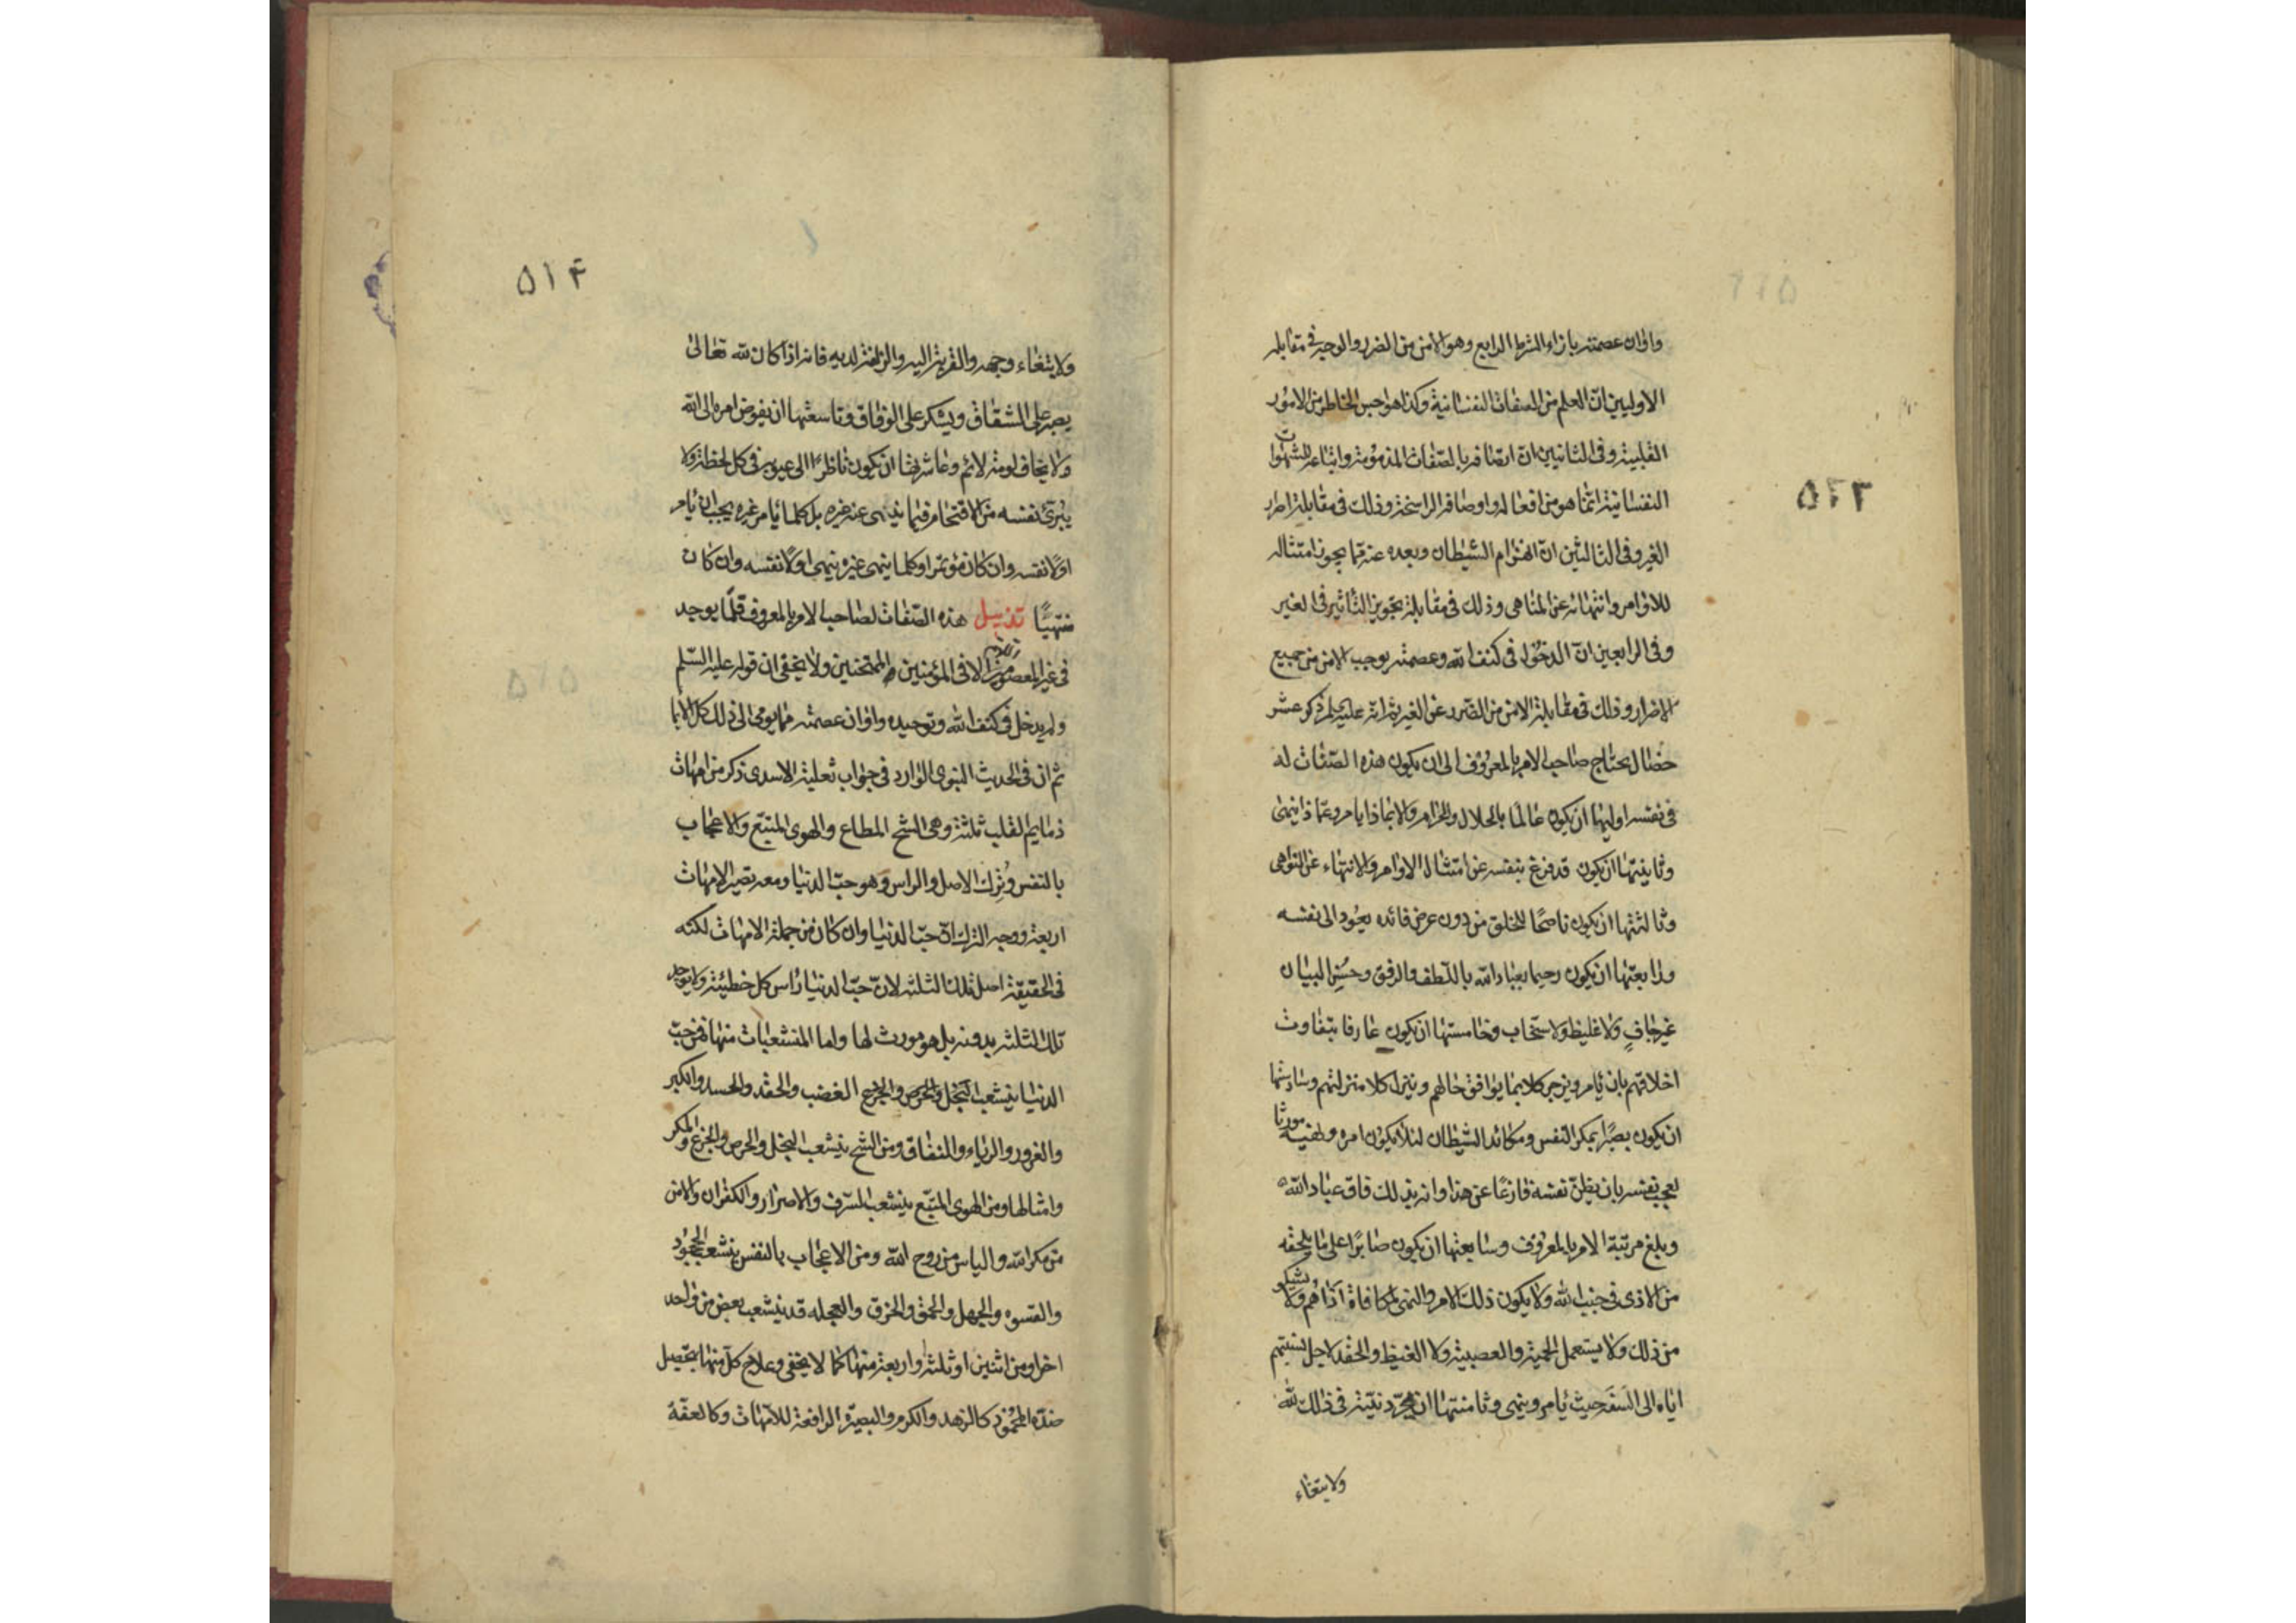 وامان عصمته بازاء الشرط الرابع وهو الامن من الضرر والوجه في مقابله
الاوليين ان العلم من الصفات النفسانية وكذا هواجس الخاطر من الامور
القلبية وفي الثانيين ان اتصافه بالصفات المذمومة واتباعه للشهوات
النفسانية انما هو من افعاله واوصافه الراسخة وذلك في مقابلة اصرار
الغير وفي الثالثين ان انهزام الشيطان وبعده عنه مما يجوز امتثاله
للاوامر وانتهائه عن المناهي وذلك في مقابلة تجويز التاثير في الغير
وفي الرابعين ان الدخول في كنف الله وعصمته يوجب الامن من جميع
الاضرار وذلك في مقابلة الامن من الضرر عن الغير ثم انه عليه السلم ذكر عشر
خصال يحتاج صاحب الامر بالمعروف الى ان يكون هذه الصفات له
في نفسه اوليها ان يكون عالما بالحلال والحرام والا بماذا يامر وعما ذا ينهى
وثانيتها ان يكون قد فرغ بنفسه عن امتثال الاوامر والانتهاء عن النواهي
وثالثتها ان يكون ناصحا للخلق من دون عرض فائده يعود الى نفسه
ورابعتها ان يكون رحيما بعباد الله باللطف والرفق وحسن البيان
غير جاف ولا غليظ ولا سخاب وخامستها ان يكون عارفا بتفاوت
اخلاقهم بان يامر ويزجر كلا بما يوافق حالهم وينزل كلا منزلتهم وسادستها
ان يكون بصيرا بمكر النفس ومكائد الشيطان لئلا يكون امره ونهيه مورثا
لعجب نفسه بان يظن نفسه فارغا عن هذا وانه بذلك فاق عباد الله
وبلغ مرتبة الامر بالمعروف وسابعتها ان يكون صابرا على ما يلحقه
من الاذى في جنب الله ولا يكون ذلك الامر والنهي لمكافاة اذاهم ولا يشكو
من ذلك ولا يستعمل الحمية والعصبية ولا الغيظ والحقد لاجل نسبتهم
اياه الى السفه حيث يامر وينهى وثامنتها ان يجرد نيته في ذلك لله
ولابتغاء
۵۲۳
۵۱۴
ولابتغاء وجهه والقربة اليه والزلفة لديه فانه اذا كان لله تعالى
يصبر على الشقاق ويشكر على الوفاق وتاسعتها ان يفوض امره الى الله
ولا يخاف لومة لائم وعاشرتها ان يكون ناظرا الى عيوبه في كل لحظة ولا
يبرئ نفسه من الاقتحام فيما ينهى عنه غيره بل كلما يامر غيره يجب ان يامر
اولا نفسه وان كان مؤتمرا وكلما ينهى غيره ينهى اولا نفسه وان كان
منتهيا تذييل هذه الصفات لصاحب الامر بالمعروف قلما يوجد
في غير المعصومين الا في المؤمنين الممتحنين ولا يخفى ان قوله عليه السلم
ولم يدخل في كنف الله وتوحيده وامان عصمته مما يومئ الى ذلك كل الايما
ثم ان في الحديث النبوي الوارد في جواب ثعلبة الاسدي ذكر من امهات
ذمايم القلب ثلثة وهي الشح المطاع والهوى المتبع والاعجاب
بالنفس وترك الاصل والراس وهو حب الدنيا ومعه تصير الامهات
اربعة ووجه الترك ان حب الدنيا وان كان من جملة الامهات لكنه
في الحقيقة اصل تلك الثلثة لان حب الدنيا راس كل خطيئة ولا يوجد
تلك الثلثة بدونه بل هو مورث لها واما المنشعبات منها فمن حب
الدنيا ينشعب البخل والحرص والجزع الغضب والحقد والحسد والكبر
والغرور والرياء والنفاق ومن الشح ينشعب البخل والحرص والجزع والمكر
وامثالها ومن الهوى المتبع ينشعب السرف والاصرار والكفران والامن
من مكر الله والياس من روح الله ومن الاعجاب بالنفس ينشعب الجحود
والقسوه والجهل والحمق والخرق والعجله قد ينشعب بعض من واحد
اخر او من اثنين او ثلثة او اربعة منها كما لا يخفى وعلاج كل منها بتحصيل
ضده المحمود كالزهد والكرم والبصيرة الرافعة للامهات وكالعفة